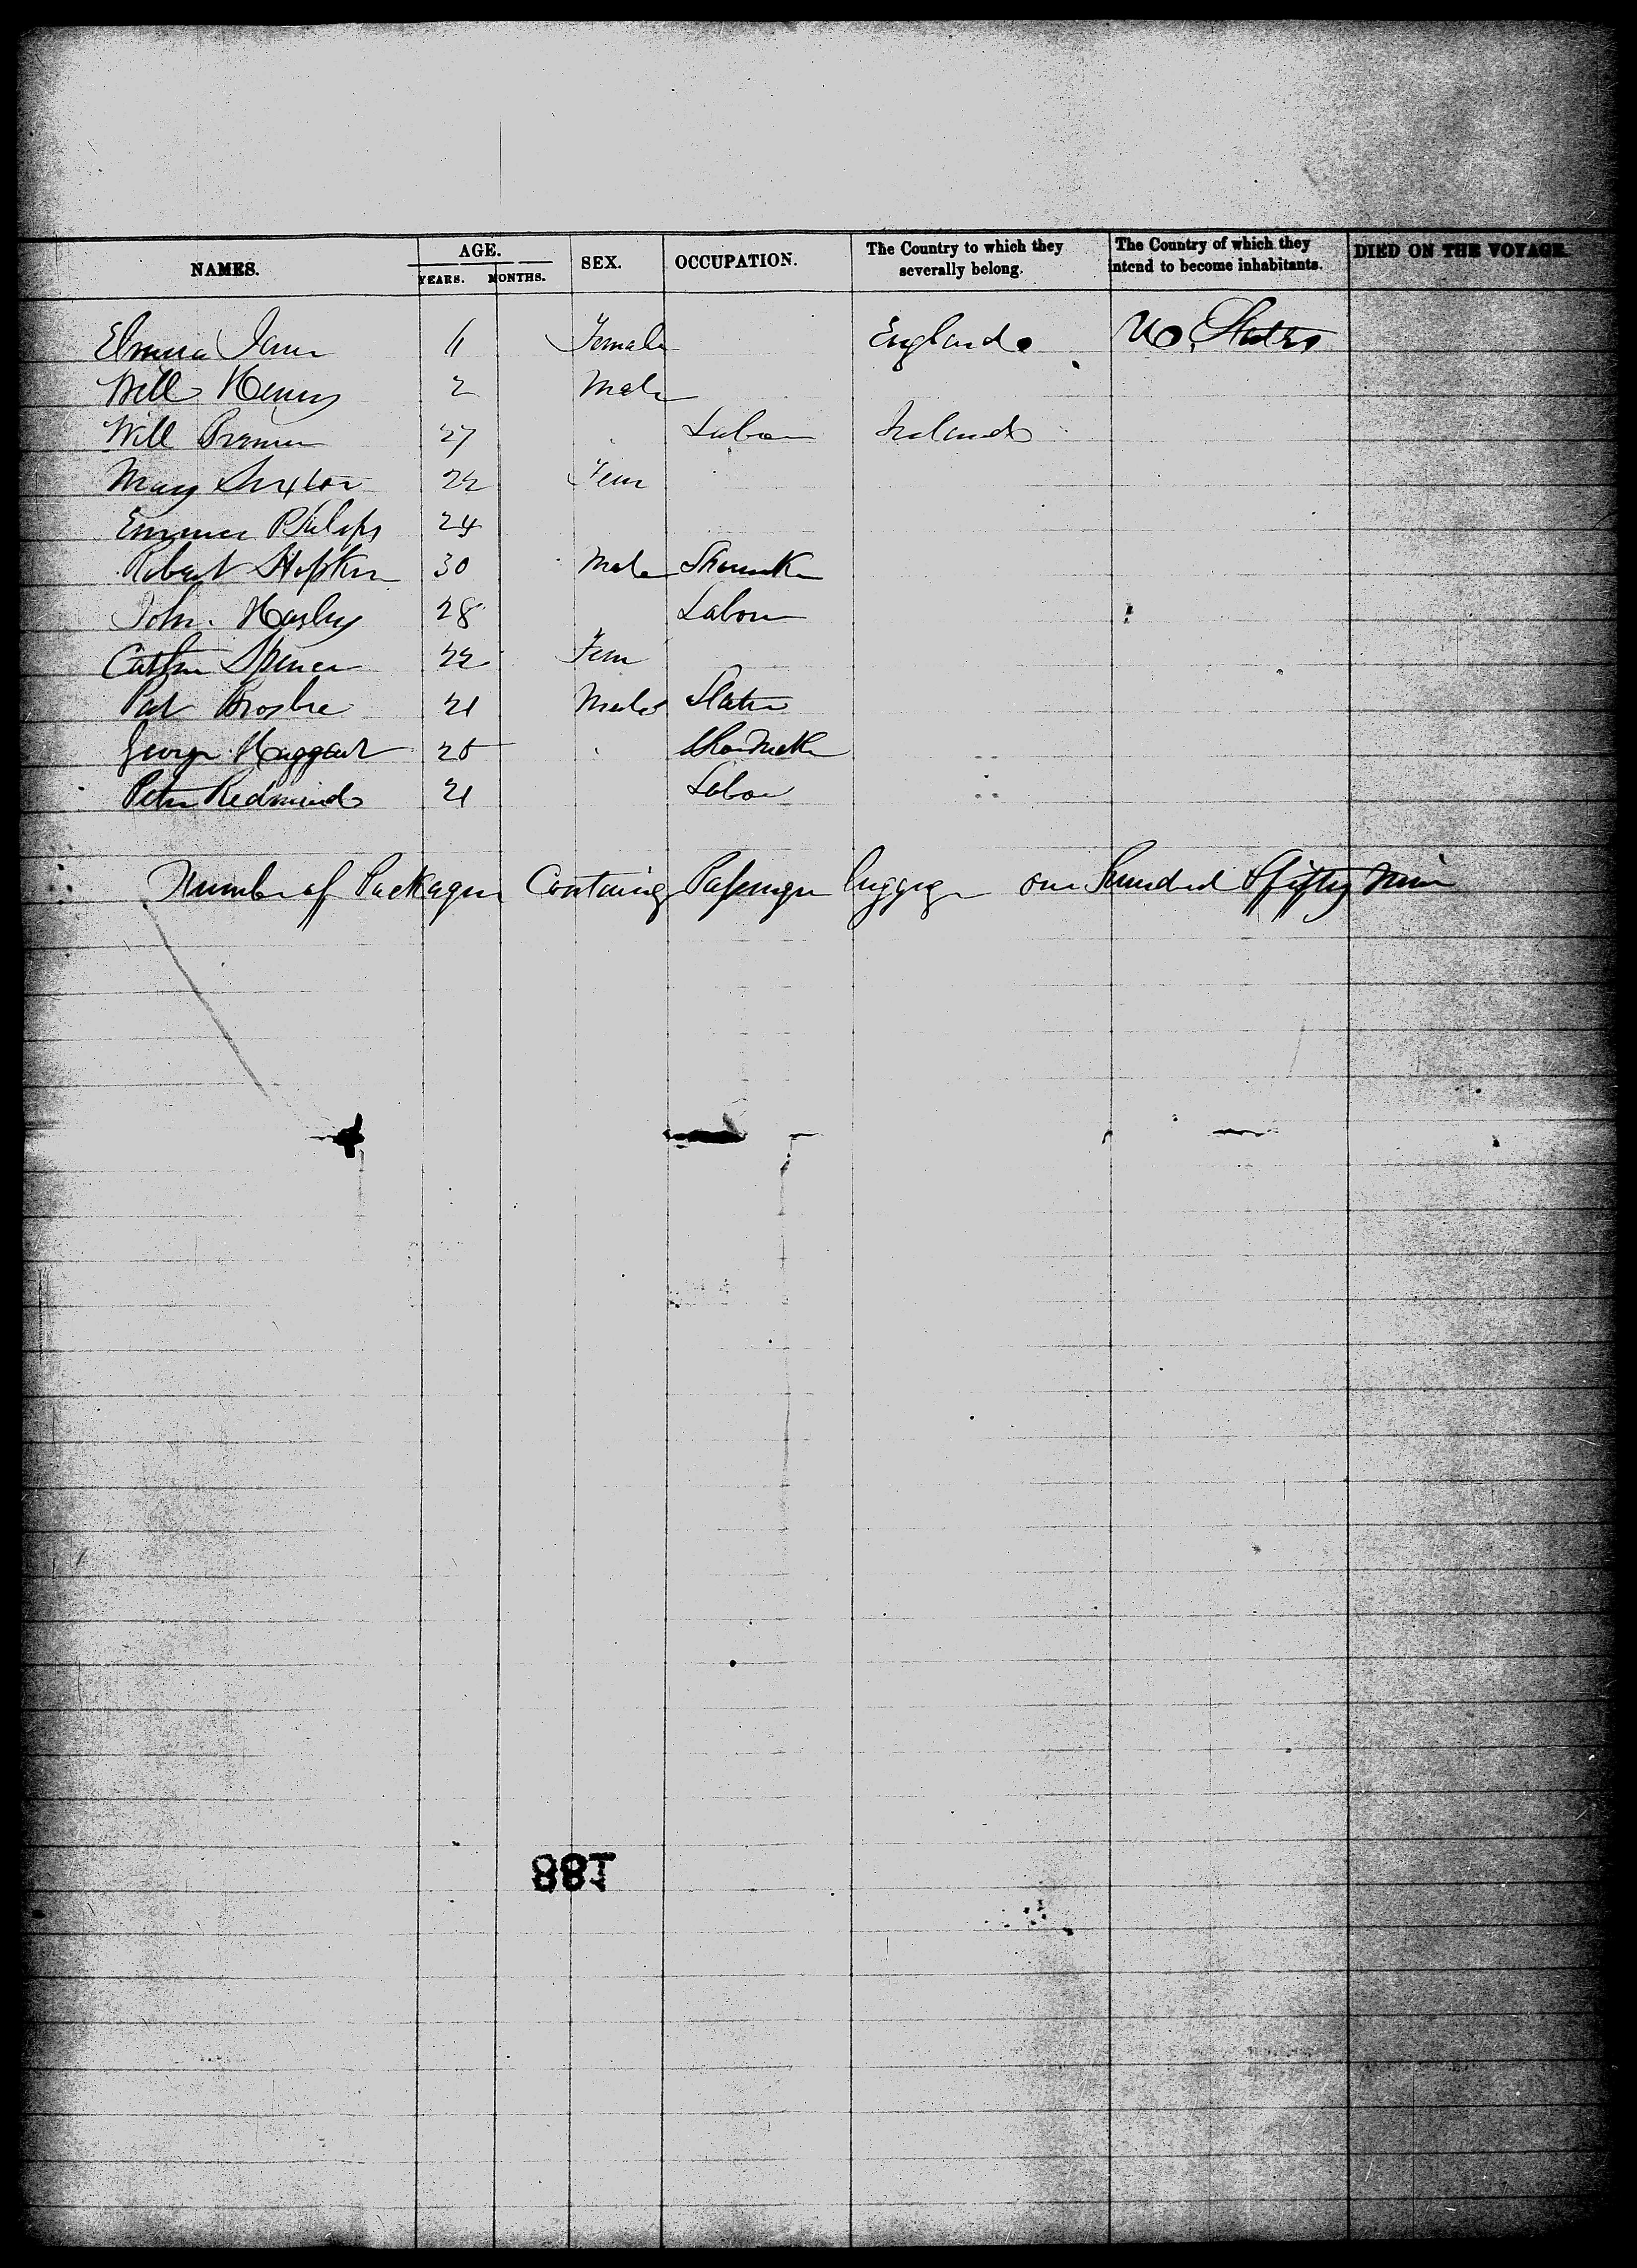 NAMES. AGE. YEARS. MONTHS. SEX. OCCUPATION. The Country to which they severally belong. The Country of which they intend to become inhabitants. DIED ON THE VOYAGE.
Emma Jane Female England U. States
Will Henry 2 Male
Will 27 Labor Ireland
Mary 22 Fem
Emma Philips 24
Robert Hopkin 30 Male
John 28 Labour
Spence 22 Fem
Pat 21 Male Slater
George Haggart 25
Peter Redmond 21 Labor
Number of Packages Containing Passenger luggage one hundred & fifty Nine
188